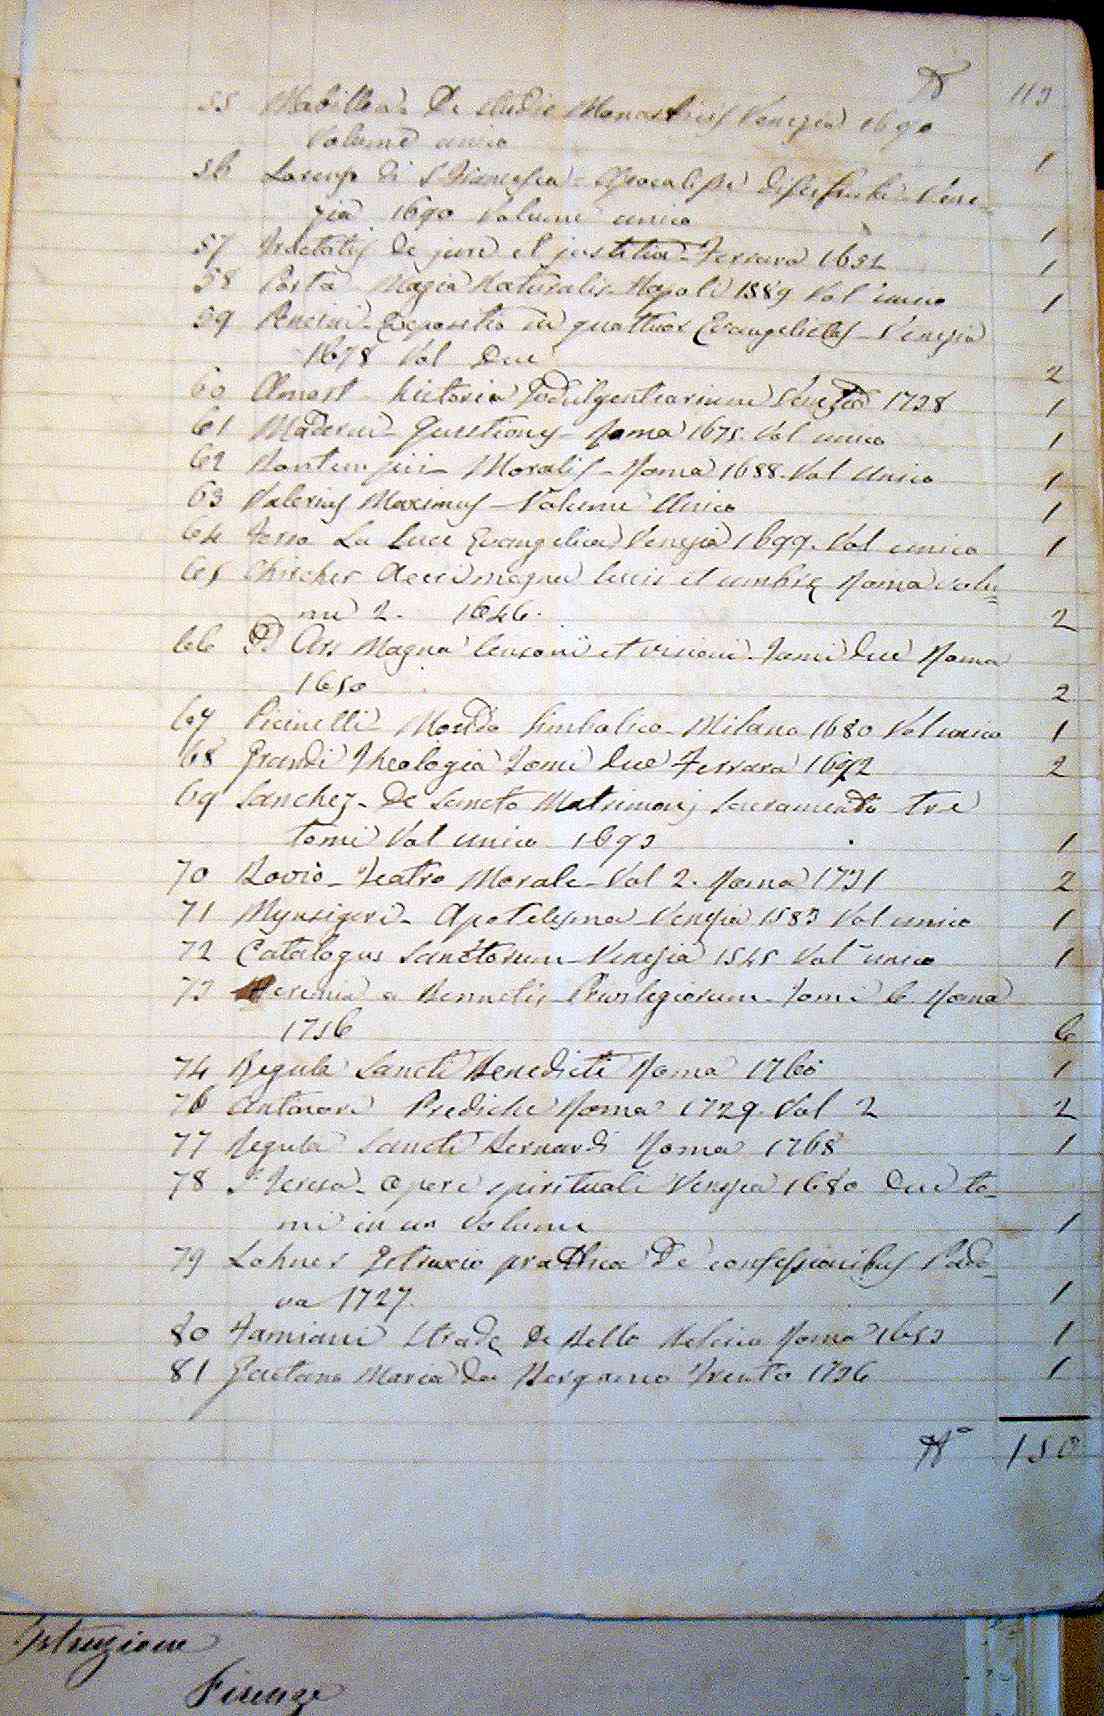 N° 113
55 Mabillon. De studie Monasticis Venezia 1690
Volume unico 1
56 Lorenzo di S. Francesca - Apocalisse Vene=
zia 1690 Volume unico 1
57 Tractatus de jure et justitia - Ferrara 1651 1
58 Porta Magia Naturalis - Napoli 1589 Vol unico 1
59 Expositio in quattuor Evangelistas - Venezia
1678 Vol Due 2
60 Amort - historia Indulgentiarum Venezia 1738 1
61 Maderni - Questiones - Roma 1675. Vol unico 1
62 Moralis - Roma 1688. Vol Unico 1
63 Valerius Maximus - Volume Unico 1
64 La Luce Evangelica Venezia 1699. Vol unico 1
65 Chircher magna lucis et umbrę Roma Volu=
me 2. 1646. 2
66 Ars Magna et Tomi Due Roma
1650 2
67 Picinelli Mondo Simbolico - Milano 1680 Vol unico 1
68 Grandi Theologia Tomi Due Ferrara 1692 2
69 Sanchez - De Sancto Matrimonj Sacramento tre
tomi Vol unico 1693 1
70 Bovio - Teatro Morale - Vol 2. Roma 1731 2
71 Mynsigeri - Apotelesma Venezia 1583 Vol unico 1
72 Catalogus Sanctorum - Venezia 1545 Vol unico 1
73 a Bennetis - Privilegiorum - Tomi 6. Roma
1756 6
74 Regula Sancti Benedicti Roma 1760 1
76 Prediche Roma 1729. Vol 2 2
77 Regula Sancti Bernardi Roma 1768 1
78 S. Teresa - Opere spirituali Venezia 1680 Due to=
mi in un Volume 1
79 Lohner Istruxio prathica De confessionibus Pado=
va 1727. 1
80 Famiani Stradę De Bello Belcico Roma 1653 1
81 Gaetano Maria da Bergamo Trento 1736 1
N° 150
Istruzione
Firenze